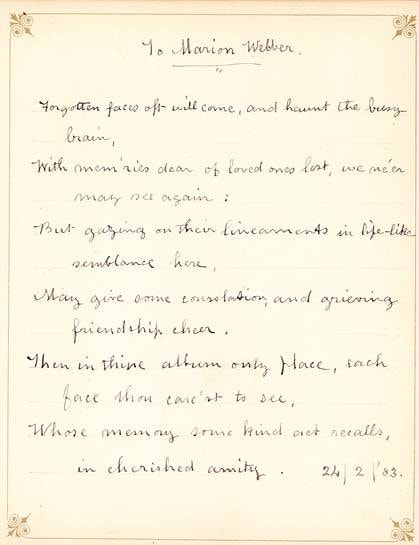 To Marion Webber.
Forgotten faces oft will come, and haunt the busy
brain,
With mem'ries dear of loved ones lost, we ne'er
may see again:
But gazing on their lineaments in life-like
semblance here,
May give some consolation, and grieving
friendship cheer.
Then in thine album only place, each
face thou care'st to see,
Whose memory some kind act recalls,
in cherished amity. 24/2/'83.